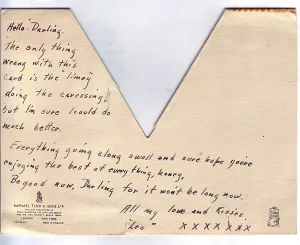 Hello Darling.
The only thing
wrong with this
card is the "limey"
doing the caressing
but I'm sure I could do
much better.
Everything going along swell and sure hope you're
enjoying the best of everything, honey.
Be good now, Darling for it won't be long now.
All my love and Kisses.
"Leo" x x x x x x x
RAPHAEL TUCK & SONS LTD